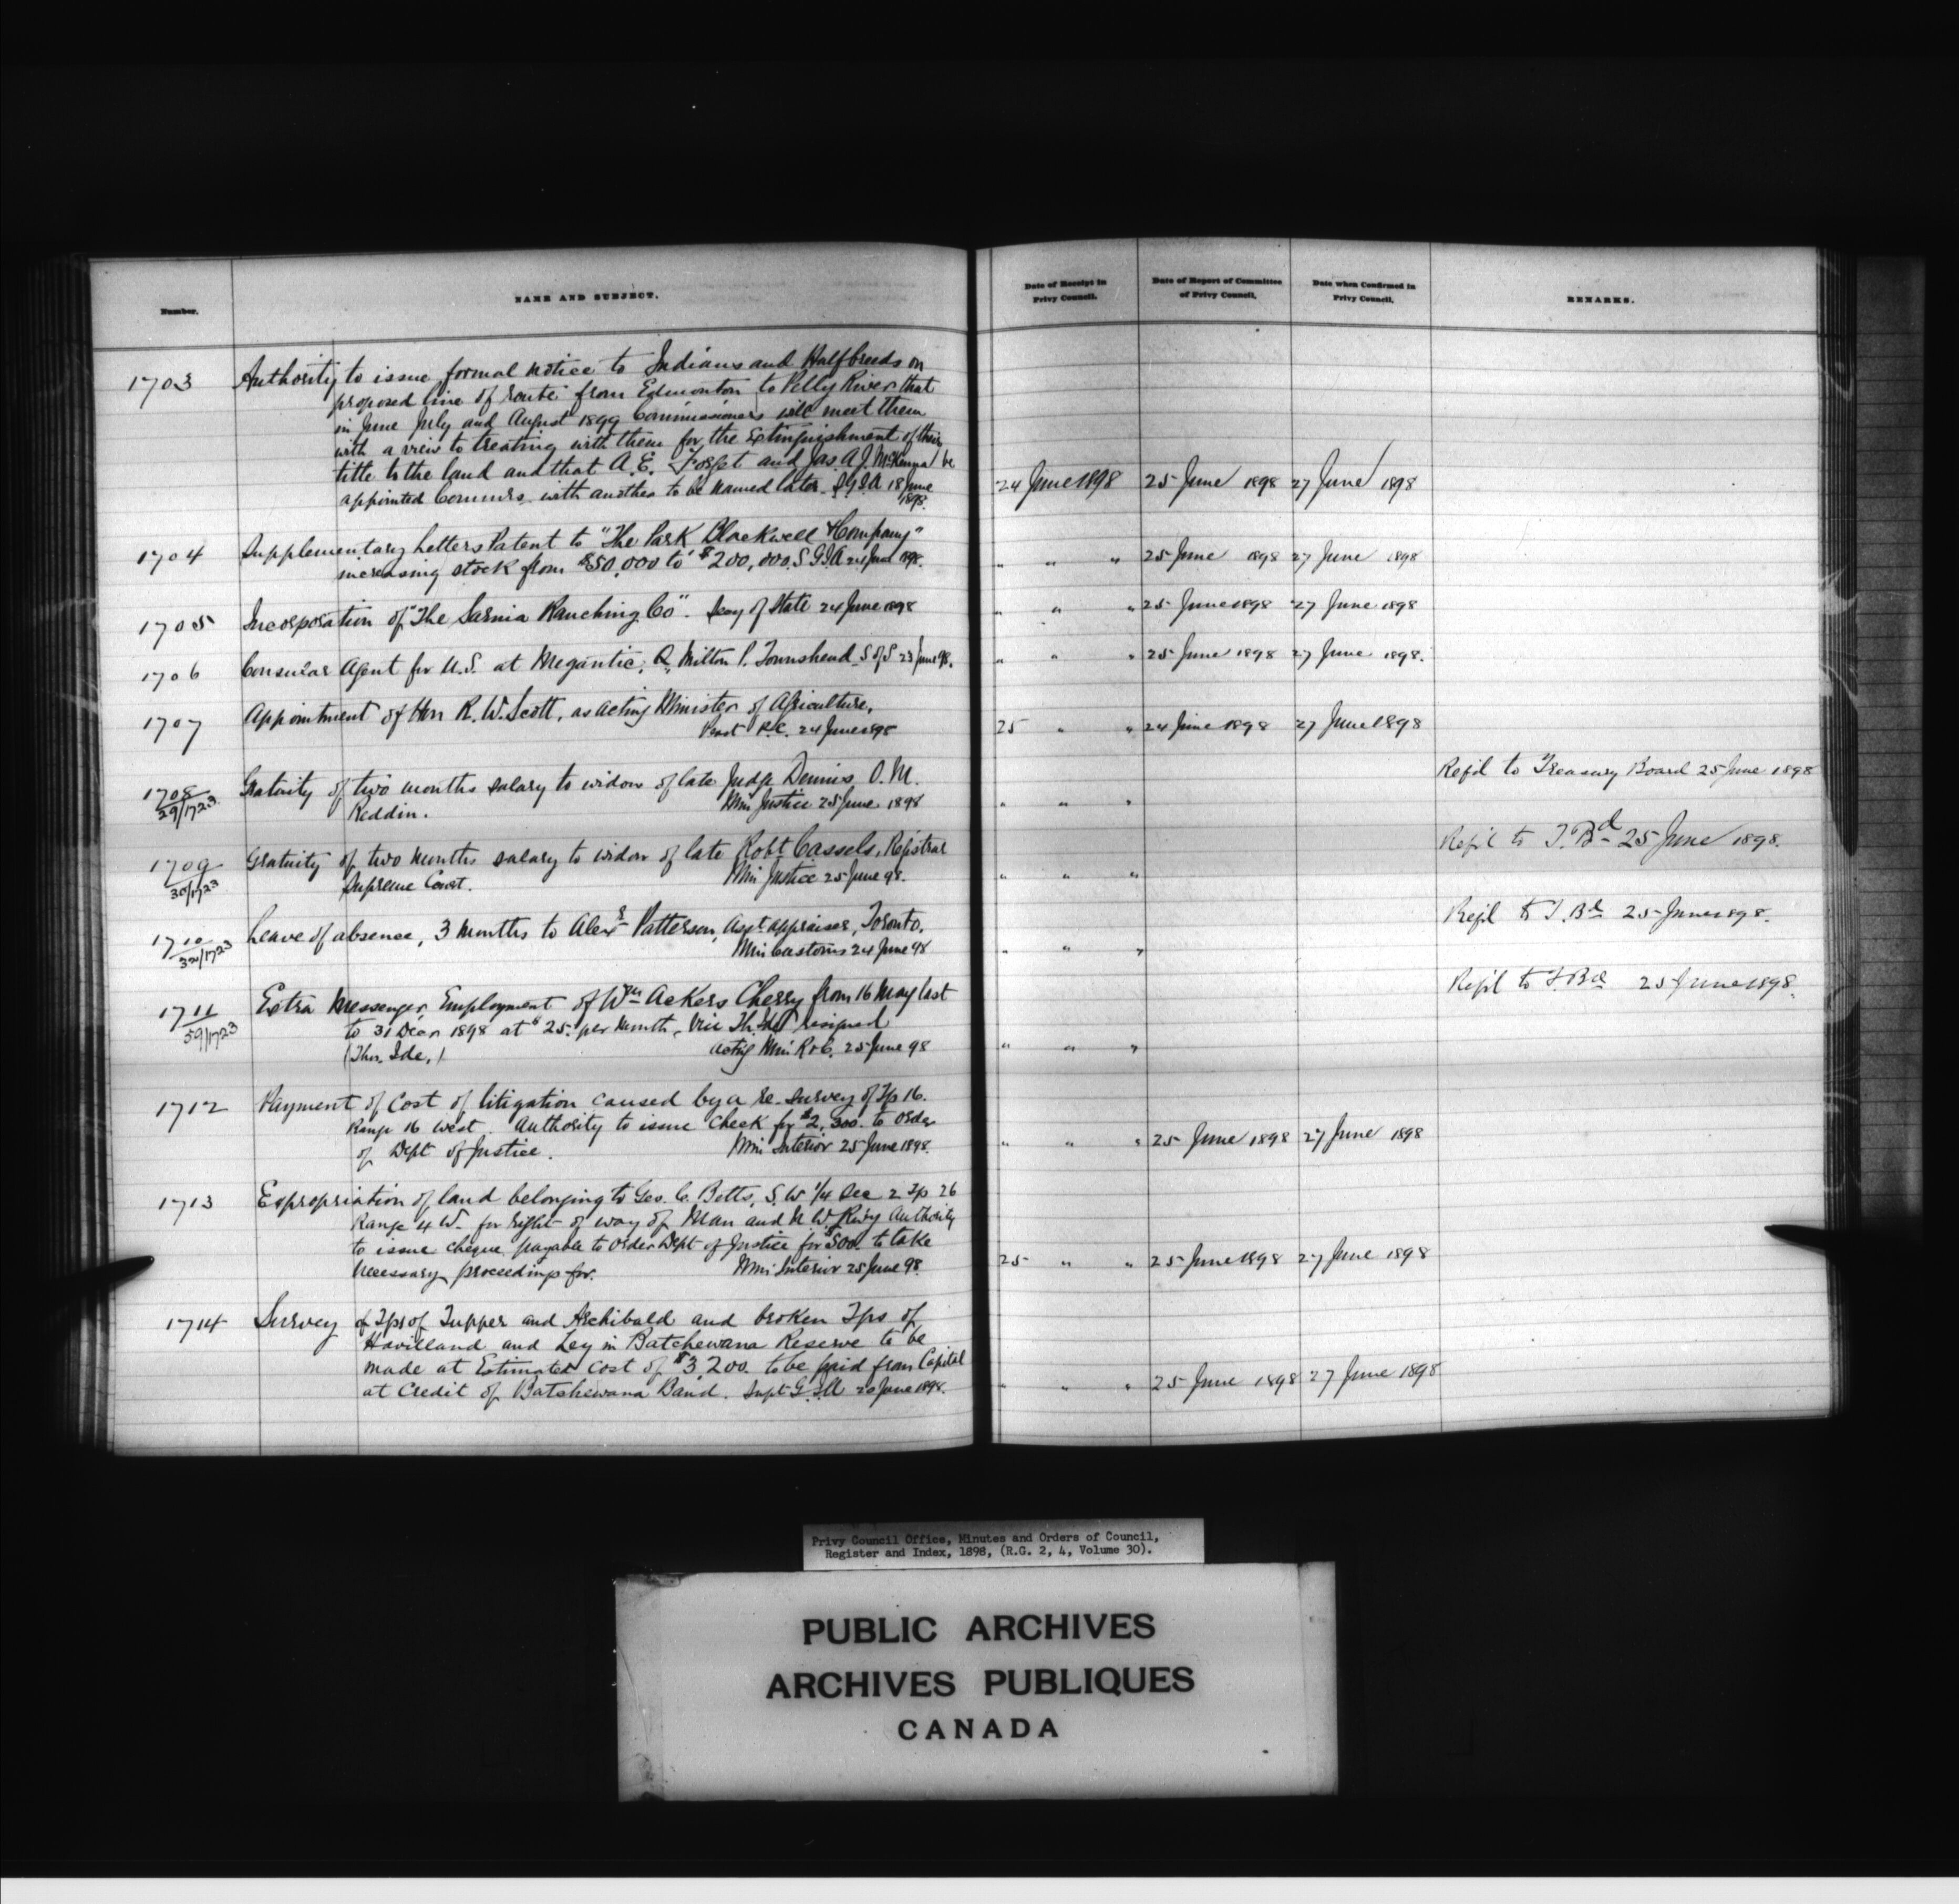 Number.
NAME AND SUBJECT.
Date of Receipt in
Privy Council.
Date of Report of Committee
of Privy Council.
Date when Confirmed in
Privy Council.
REMARKS.
1703
Authority to issue formal notice to Indians and Halfbreeds on
proposed line of route from Edmonton to Pelly River that
in June July and August 1899 Commissioners will meet them
with a view to treating with them for the Extinguishment of their
title to the land and that A. E. Forget and Jas. A. J. McKenna be
appointed Commrs. with another to be named later. S.G.I.A 18 June
1898.
24 June 1898 25 June 1898 27 June 1898
1704
Supplementary Letters Patent to "The Park Blackwell & Company"
increasing stock from $50,000 to $200,000. S.G.I.A 24 June 1898.
" " " 25 June 1898 27 June 1898
1705
Incorporation of "The Sarnia Ranching Co". Secy of State 24 June 1898
" " " 25 June 1898 27 June 1898
1706
Consular Agent for U.S. at Megantic, Q, Milton P. Townshend S of S 23 June 98.
" " " 25 June 1898 27 June 1898.
1707
Appointment of Hon R. W. Scott, as acting Minister of Agriculture.
Prest P.C. 24 June 1898
25 " " 24 June 1898 27 June 1898
1708
29/1723
Gratuity of two months salary to widow of late Judge Dennis O. M.
Reddin. Min Justice 25 June 1898
" " "
Ref'd to Treasury Board 25 June 1898
1709
30/1723
Gratuity of two months salary to widow of late Robt Cassels, Registrar
Supreme Court. Min Justice 25 June 98.
" " "
Ref'd to T. Bd 25 June 1898.
1710
32/1723
Leave of absence, 3 months to Alexr Patterson, Asst appraiser, Toronto.
Min Customs 24 June 98
" " "
Ref'd to T. Bd 25 June 1898.
1711
59/1723
Extra Messenger, Employment of Wm Ackers Cherry from 16 May last
to 31 Decr 1898 at $25. per Month, Vice Th. Ide resigned
(Thos. Ide,) Acting Min R & C. 25 June 98
" " "
Ref'd to T Bd 25 June 1898.
1712
Payment of cost of litigation caused by a re-survey of Tp 16.
Range 16 West. Authority to issue check for $2,300. to order
of Dept of Justice. Min Interior 25 June 1898.
" " " 25 June 1898 27 June 1898
1713
Expropriation of land belonging to Geo. C. Betts, S.W 1/4 Sec 2 Tp 26
Range 4 W. for right of way of Man and N. W. Rwy Authority
to issue cheque payable to order Dept of Justice for $500. to take
necessary proceedings for. Min Interior 25 June 98.
25 " " 25 June 1898 27 June 1898
1714
Survey of Tps of Tupper and Archibald and broken Tps of
Havilland and Ley in Batchewana Reserve to be
made at Estimated cost of $3,200. to be paid from Capital
at Credit of Batchewana Band. Supt G.I.A 20 June 1898.
" " " 25 June 1898 27 June 1898
Privy Council Office, Minutes and Orders of Council,
Register and Index, 1898, (R.G. 2, 4, Volume 30).
PUBLIC ARCHIVES
ARCHIVES PUBLIQUES
CANADA